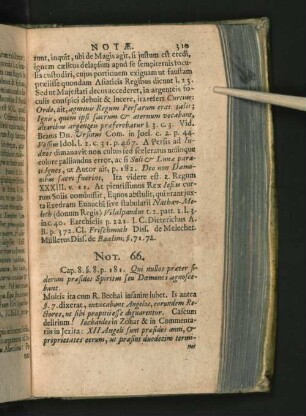 NOTÆ. 310
runt, inquit, ubi de Magis agit, si justum est credi,
ignem cœlitus delapsum apud se sempiternis focu-
lis custodiri, cujus portionem exiguam ut faustam
præisse quondam Asiaticis Regibus dicunt l. 23.
Sed ut Majestati decus accederet, in argenteis fo-
culis conspici debuit & incere, ita refert Curtius:
Ordo, ait, agminis Regum Persarum erat talis:
Ignis, quem ipsi sacrum & æternum vocabant,
altaribus argenteis præferebatur l. 3. c. 3. Vid.
Beatus Dn. Ursinus Com. in Joel. c. 2. p. 44.
Vossius Idolol. l. 2. c. 31. p. 467. A Persis ad Ju-
dæos dimanavit non cultus sed sceleratus usus que
colore palliandus error, ac si Soli & Lunæ para-
ti Ignes, ut Autor ait, p. 182. Deo non Dæmo-
nibus sacri fuerint, Ita videre est 2. Regum
XXXIII. v. 11. At pientissimus Rex Josias cur-
rus Solis combussit, Equos abstulit, qui erant jux-
ta Exedram Eunuchi sive stabularii Nathan-Me-
lech (donum Regis) Villalpandus t. 2. part. 2. l. 3.
in c. 40. Ezechielis p. 221. J. C. Dietericus A.
B. p. 372. Cl. Frischmuth Diss. de Melechet.
Müllerus Diss. de Baalim, §. 71. 72.
NOT. 66.
Cap. 8. §. 8. p. 181. Qui nullos præter si-
derum præsides Spiritus seu Dæmones agnosce-
bant.
Mulcis ita cum R. Bechai insanire lubet. Is antea
§. 7. dixerat, invocabant Angelos, eorundem Re-
ctores, ut sibi propitiesse dignarentur. Cascum
delirium! Iochaides in Zohar & in Commenta-
riis in Jezira: XII Angeli sunt præsides anni, &
proprietates eorum, ut præsint duodecim termi-
nis